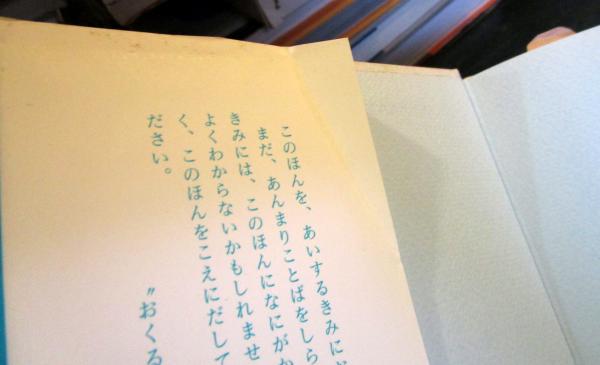 このほんを、あいするきみに
まだ、あんまりことばをしら
きみには、このほんになにが
よくわからないかもしれませ
く、このほんをこえにだして
ださい。
〝おくる